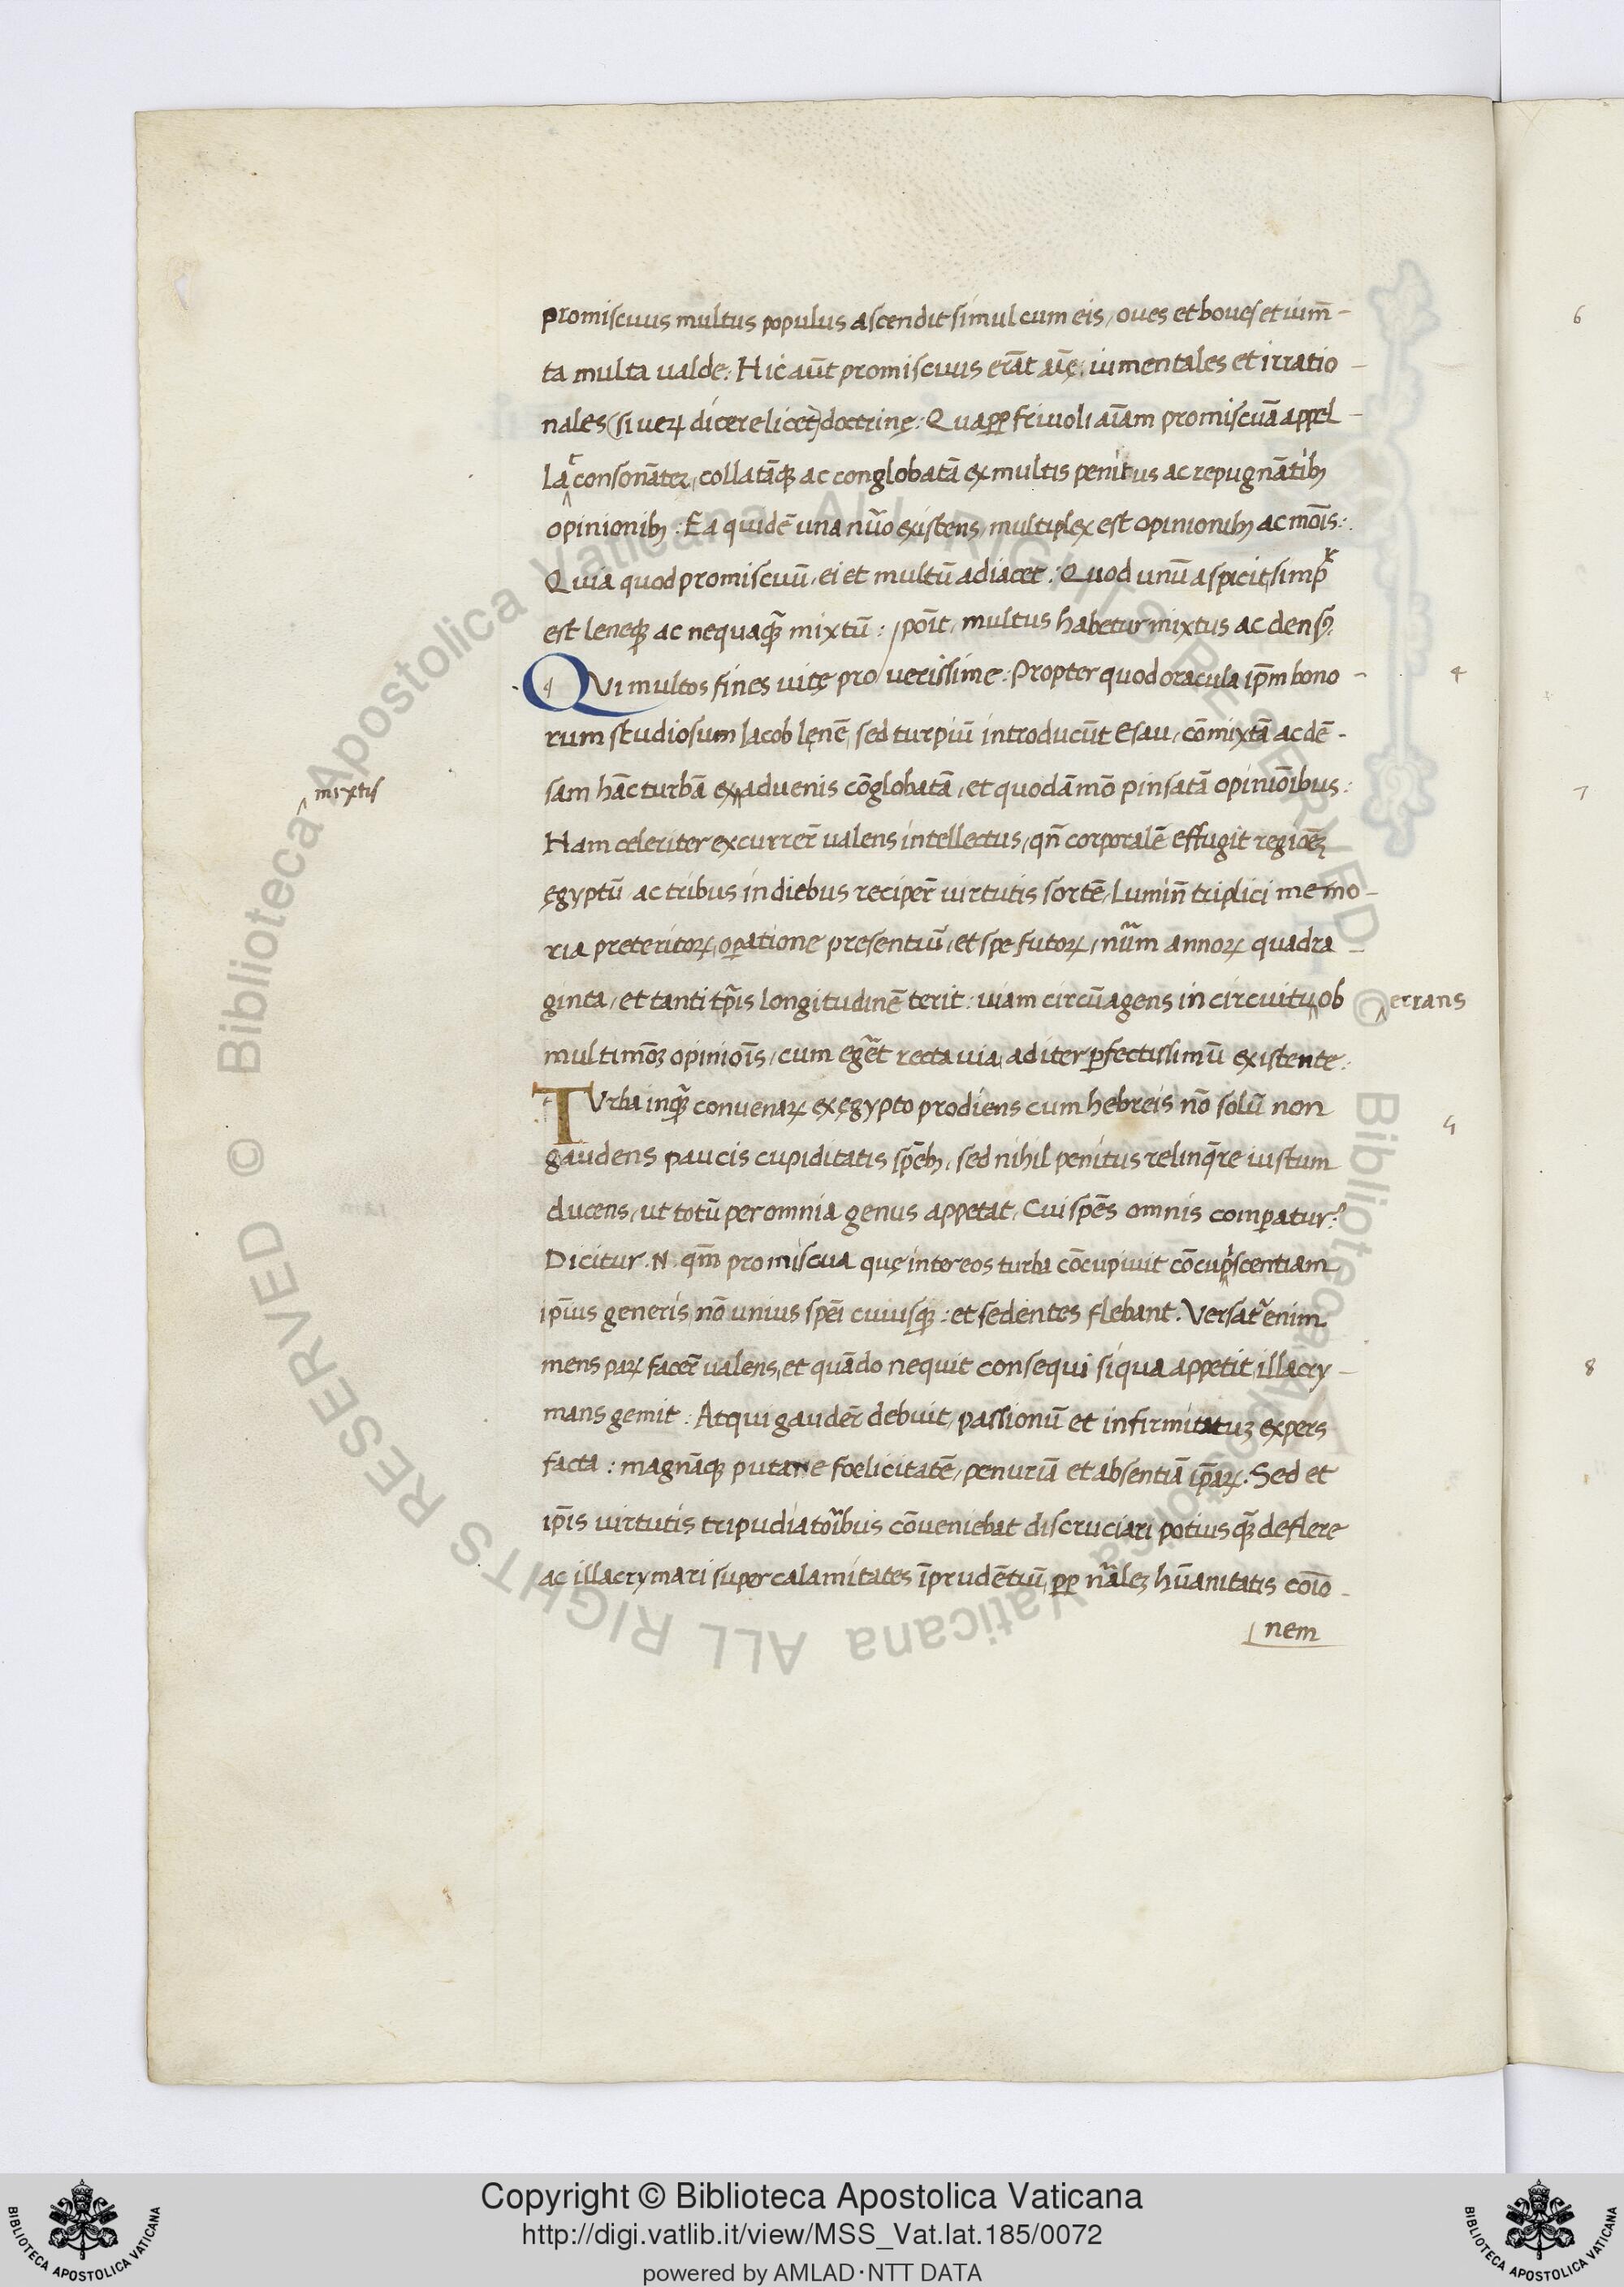 promiscuus multus populus ascendit simul cum eis, oues et boues et ium̄-
ta multa ualde: Hic aūt promiscuus erāt aīę, iumentales et irratio-
nales (si ueꝝ dicere licet) doctrinę: Quaꝓꝑ friuoli aīam promiscuā appel-
lāt consonāter, collatāqꝫ ac conglobatā ex multis penitus ac repugnātibꝫ
opinionibꝫ: Ea quidē una nūo existens, multiplex est opinionibꝫ ac moīs:
Quia quod promiscuū, ei et multū adiacet: Quod unū aspicit, simpᵏ
est leneqꝫ ac nequaqꝫ̄ mixtū: poīt, multus habetur mixtus ac densꝰ.
QVi multos fines uitę pro uerissime: Propter quod oracula ip̄m bono-
rum studiosum Iacob lęnē, sed turpiū introducūt Esau, cōmixtā ac dē-
sam hāc turbā ex aduenis cōglobatā, et quodāmō pinsatā opiniōibus:
mixtis
Nam celeriter excurrer̄ ualens intellectus, qn̄ corporalē effugit regioēꝫ
ęgyptū ac tribus in diebus reciper̄ uirtutis sortē, Lumin̄ triplici memo-
ria preteritoꝝ, oꝑatione presentiū, et spe futoꝝ, nūm annoꝝ quadra-
ginta, et tanti tp̄is longitudinē terit: uiam circūagens in circuitu ob
errans
multimoꝫ opinioīs, cum egēt recta uia, ad iter ꝑfectissimū existente:
TVrba inqꝫ̄ conuenaꝝ ex ęgypto prodiens cum hebreis nō solū non
gaudens paucis cupiditatis spēbꝫ, sed nihil penitus relinq̄re iustum
ducens, ut totū per omnia genus appetat, Cui spēs omnis comparatur?
Dicitur .N. qm̄ promiscua quę inter eos turba cōcupiuit cōcupiscentiam
ip̄ius generis, nō unius spēi cuiusqꝫ: et sedentes flebant. Versat̄ enim
mens paꝝ facer̄ ualens, et quādo nequit consequi siqua appetit, illacry-
mans gemit: Atqui gauder̄ debuit, passionū et infirmitatuꝫ expers
facta: magnāqꝫ putare foelicitatē, penuriā et absentiā ip̄aꝝ. Sed et
ip̄is uirtutis tripudiatoībus cōueniebat discruciari potius qꝫ̄ deflere
ac illacrymari super calamitates īprudētiū, ꝓꝑ nāleꝫ hūanitatis coīo-
nem
4
5
6
7
8
Copyright © Biblioteca Apostolica Vaticana
http://digi.vatlib.it/view/MSS_Vat.lat.185/0072
powered by AMLAD·NTT DATA
BIBLIOTECA APOSTOLICA VATICANA
BIBLIOTECA APOSTOLICA VATICANA
© Biblioteca Apostolica Vaticana ALL RIGHTS RESERVED © Biblioteca Apostolica Vaticana ALL RIGHTS RESERVED